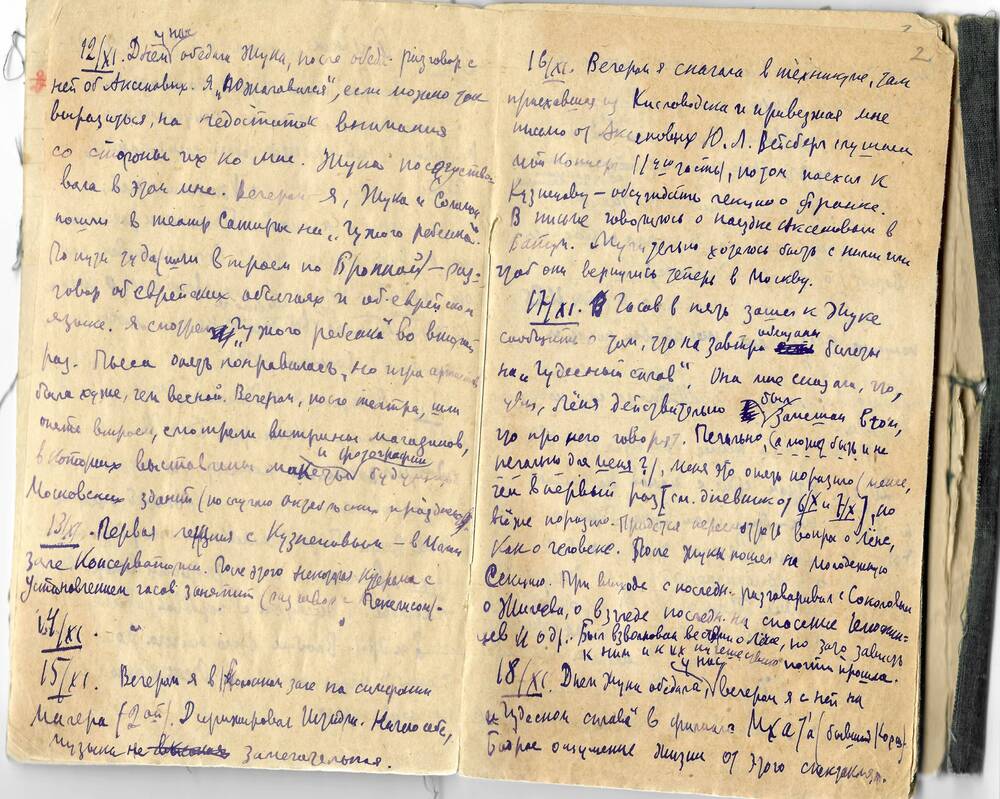 12/XI. Днем у нас обедала Жука, после обеда - разговор с
ней об Аксеновых. Я „пожаловался", если можно так
выразиться, на недостаток внимания
со стороны их ко мне. Жука посочувство
вала в этом мне. Вечером - я, Жука и Соколов
пошли в театр Сатиры на „Чужого ребенка".
По пути туда шли втроем по Бронной - раз-
говор об еврейских обычаях и об еврейском
языке. Я смотрел „Чужого ребенка" во второй
раз. Пьеса опять понравилась, но игра артистов
была хуже, чем весной. Вечером, после театра, шли
опять втроем, смотрели витрины магазинов,
в которых выставлены макеты и фотографии будущих
Московских зданий (по случаю октябрьских праздников).
13/XI. Первая лекция с Кузнецовым - в Малом
зале Консерватории. После этого некоторая с
установлением часов занятий (разговор с ).
14/XI. "
15/XI. Вечером я в Большом зале на симфонии
Малера (2ой). Дирижировал Штидри. Ничего себе,
музыка замечательная.
2
16/XI. Вечером я сначала в техникуме, там
приехавшая из Кисловодска и привезшая мне
письмо от Аксеновых Ю. Л. Вейсберг слушали
мой концерт (1ую часть), потом поехал к
Кузнецову - обсуждать лекцию о Франке.
В письме говорилось о поездке Аксеновых в
Батум. Мучительно хотелось быть с ними или
чтоб они вернулись теперь в Москву.
17/XI. Часов в пять зашел к Жуке
сообщить о том, что на завтра обещаны билеты
на „Чудесный сплав". Она мне сказала, что,
увы, Лёня действительно был замешан в том,
что про него говорят. Печально, (а может быть и не
печально для меня?), меня это опять поразило (менее,
чем в первый раз [см. дневник от 6/X и 7/X], но
всё же поразило. Придется пересмотреть вопрос о Лёне,
как о человеке. После Жуки пошел на молодежную
Секцию. При выходе с последн. разговаривал с Соколовым
о Жиляеве, о взгляде последн. на спасение челюскин-
цев и др. Был взволнован вестями о Лёне, но зато зависть
к ним и к их путешествию почти прошла.
18/XI. Днем Жука обедала у нас, вечером я с ней на
„Чудесном сплаве" в филиале МХАТ'а (бывший Корш).
Бодрое ощущение жизни от этого спектакля.